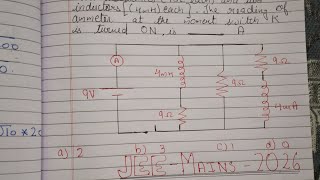 inductors (4mH) each). The reading of
ammeter at the moment switch K
is turned ON, is ______ A
A
4mH
9Ω
9V
9Ω
9Ω
4mH
a) 2 b) 3 c) 1 d) 0
JEE-MAINS-2026